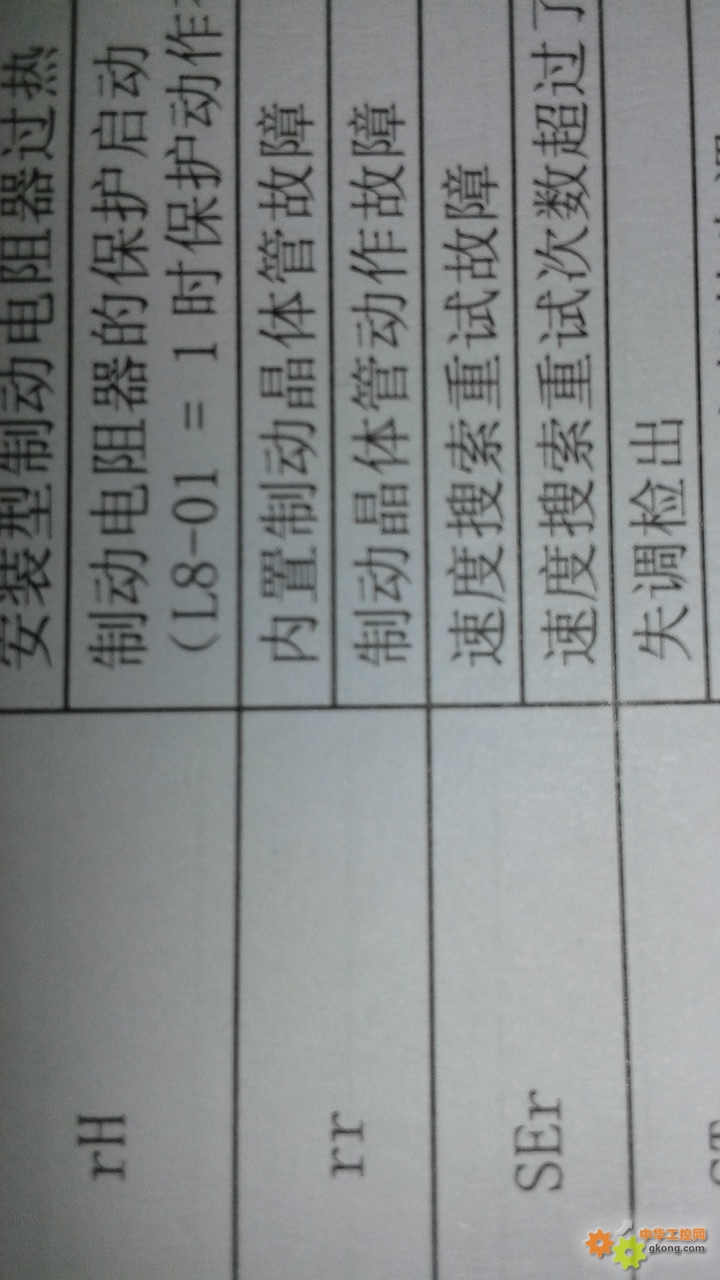 rH
安装型制动电阻器过热
制动电阻器的保护启动
(L8-01 = 1时保护动作
rr
内置制动晶体管故障
制动晶体管动作故障
SEr
速度搜索重试故障
速度搜索重试次数超过了
失调检出
中华工控网
gkong.com